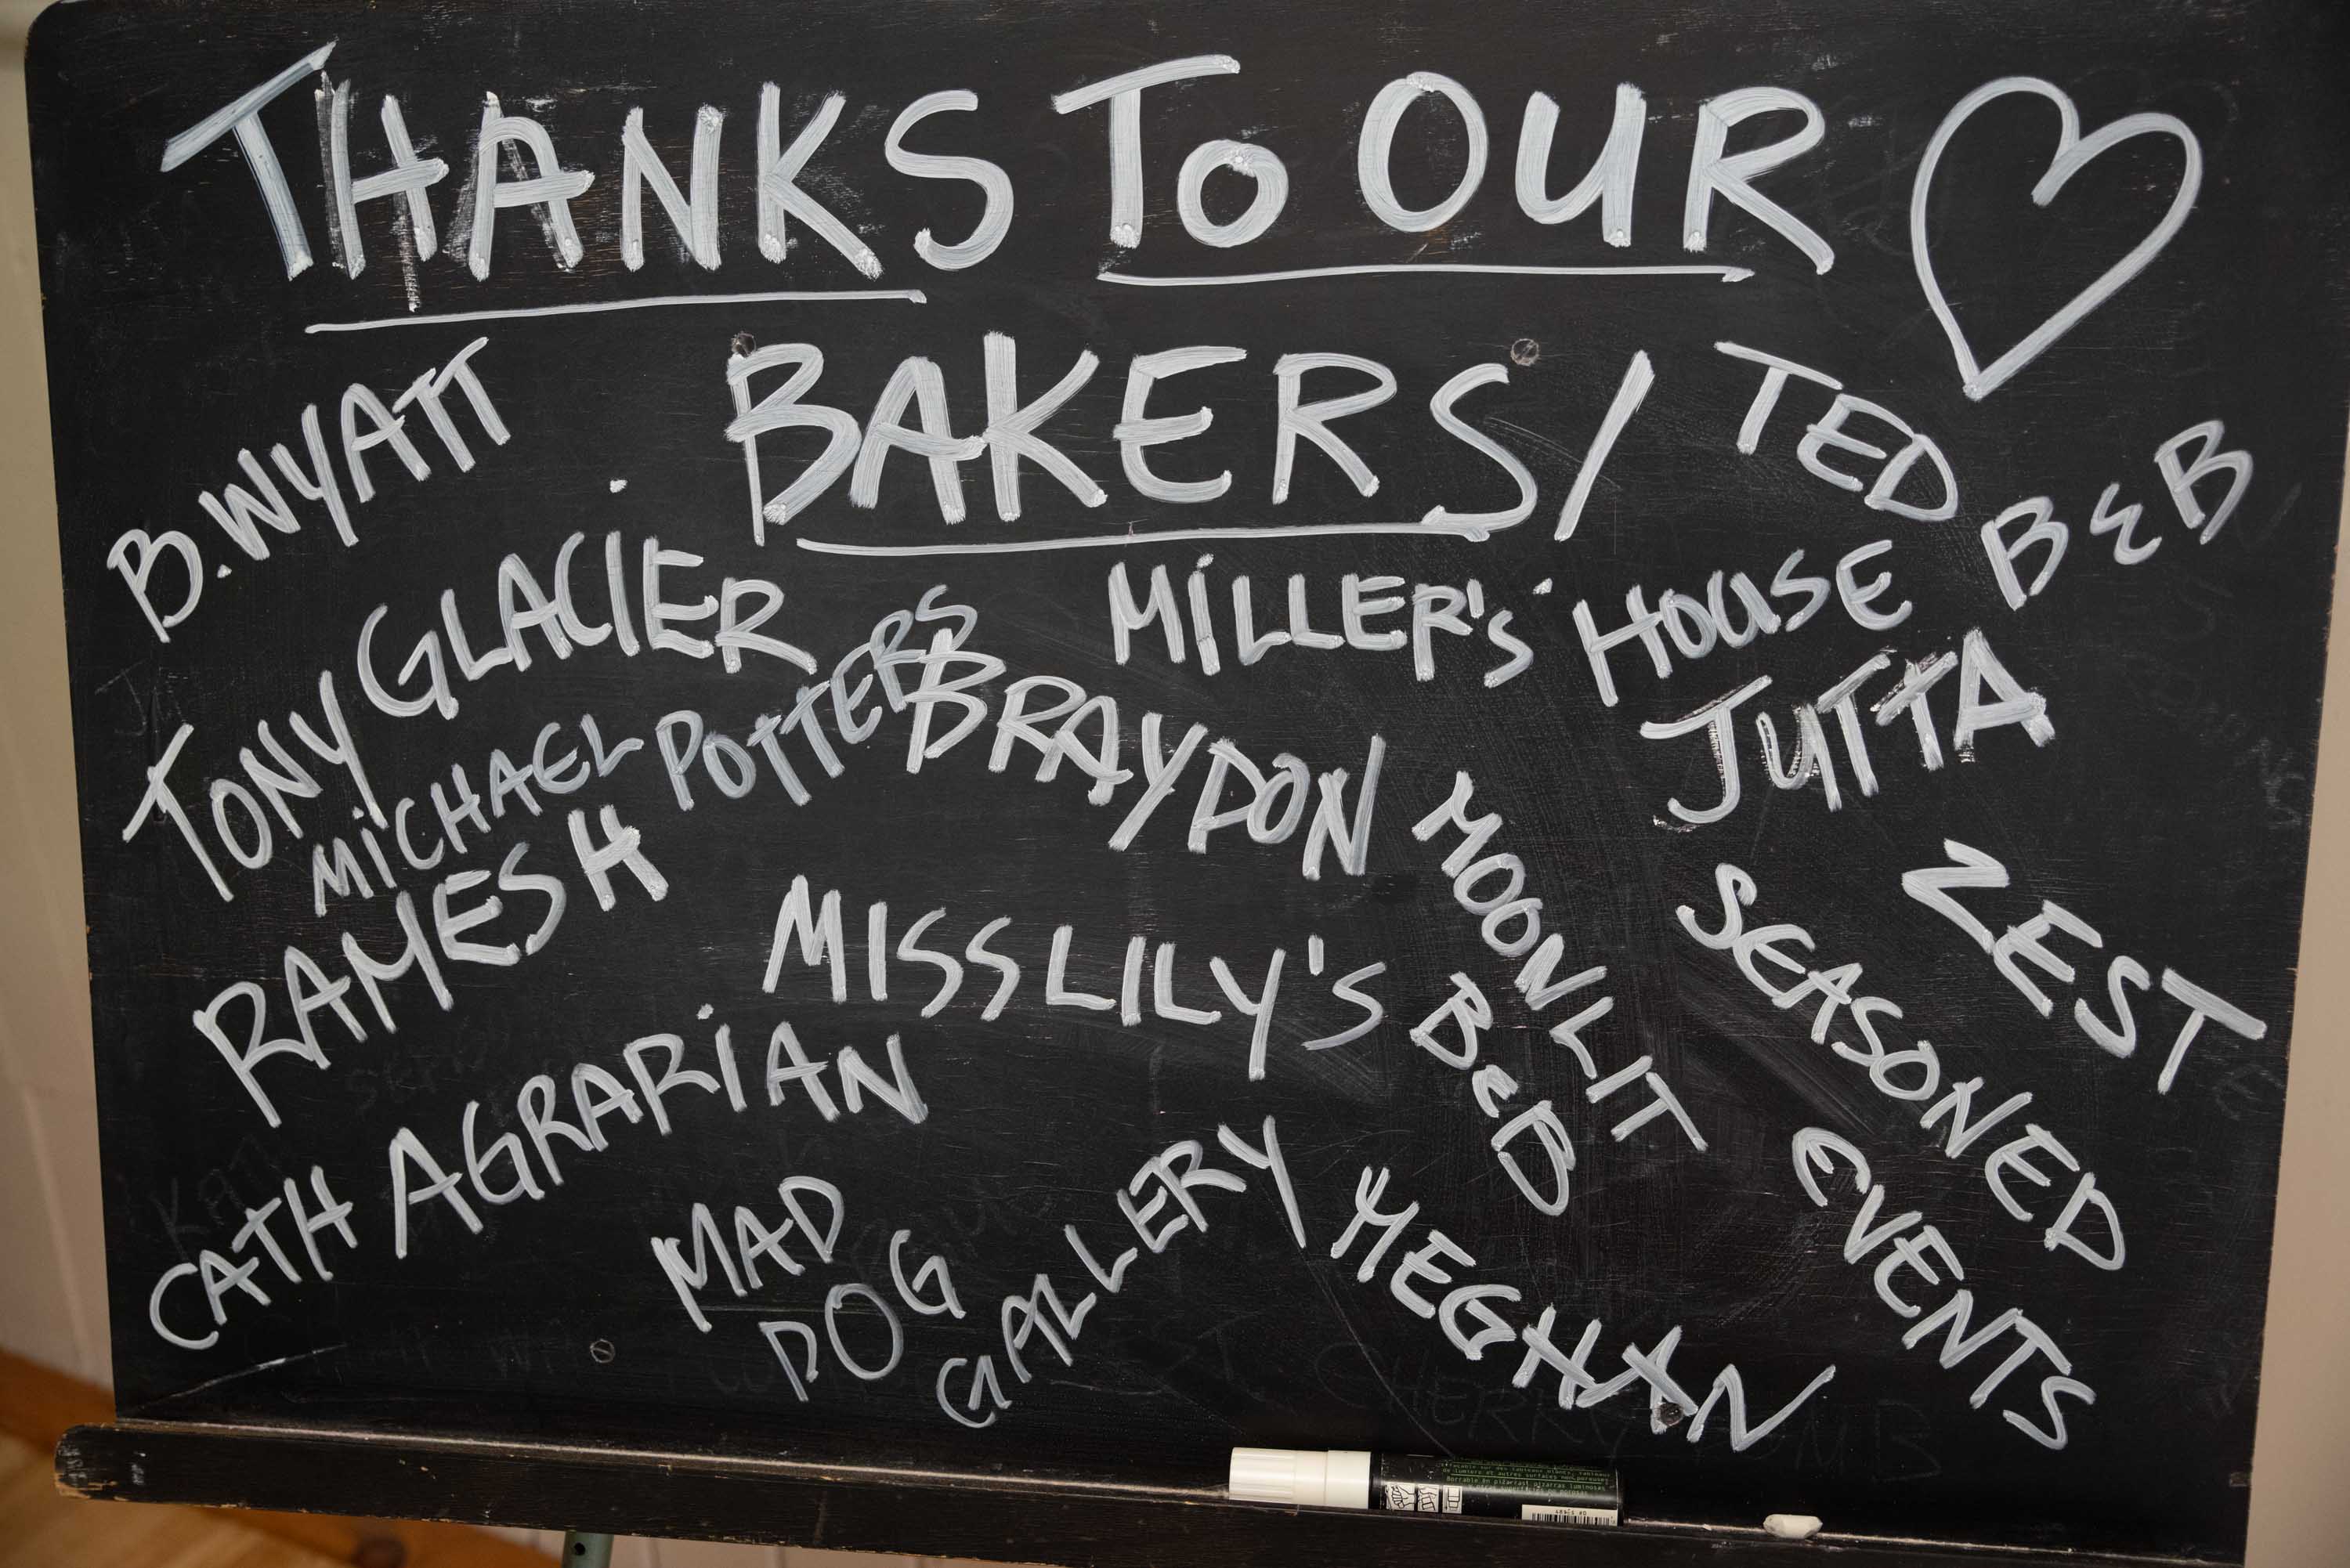 THANKS TO OUR
BAKERS/
TED
B.WYATT
TONY GLACIER
MILLER'S HOUSE B & B
MICHAEL POTTERS
BRAYDON
JUTTA
RAMESH
MISS LILY'S
MOONLIT
B&B
ZEST
SEASONED
EVENTS
CATH AGRARIAN
MAD
DOG
GALLERY
MEGHAN